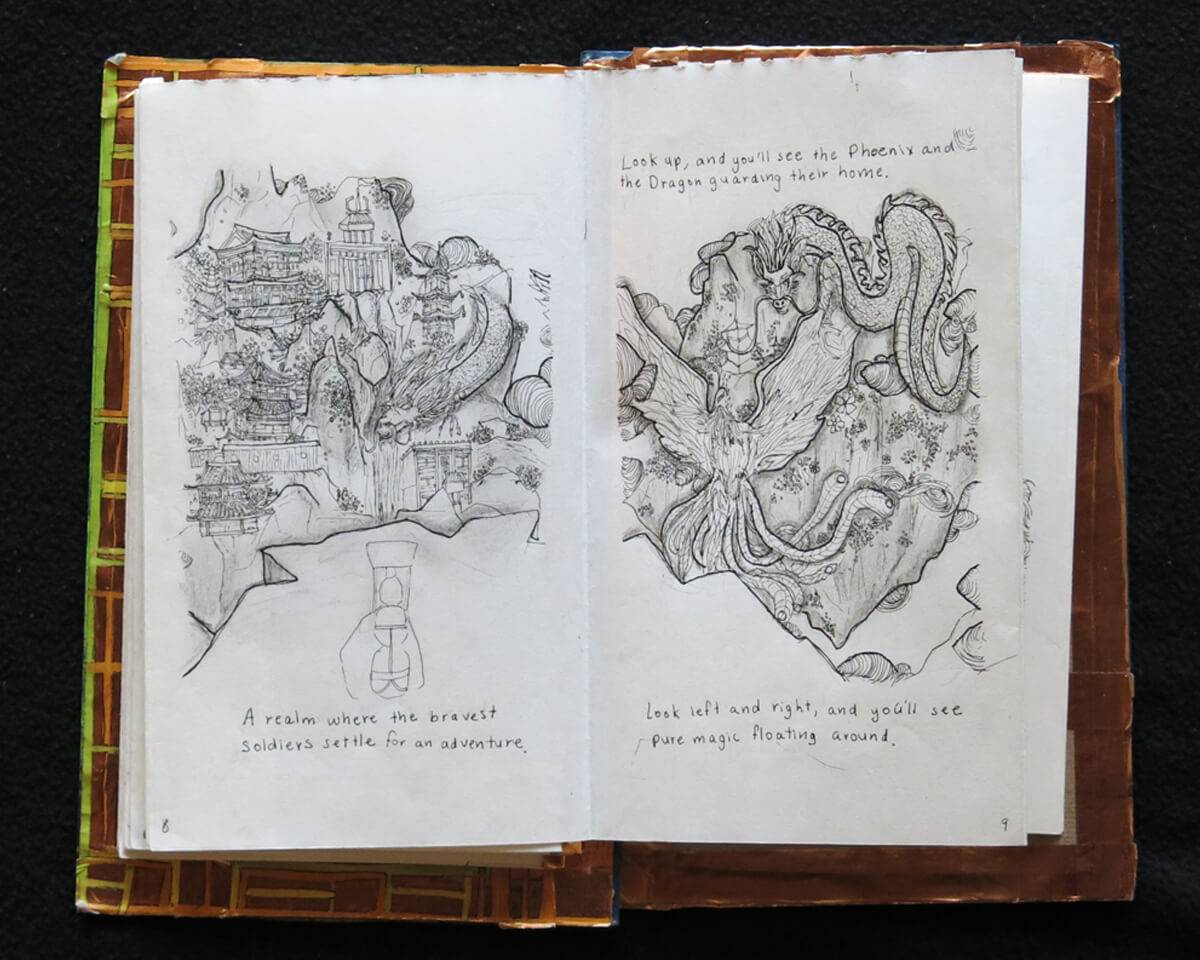 A realm where the bravest
soldiers settle for an adventure.
8
Look up, and you'll see the Phoenix and
the Dragon guarding their home.
Look left and right, and you'll see
pure magic floating around.
9